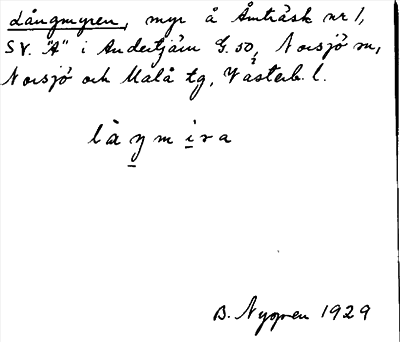 Långmyren, myr å Åmträsk nr 1,
SV. "A" i Andertjärn G. 50, Norsjö sn,
Norsjö och Malå tg, Västerb. l.
låŋmira
B. Nygren 1929